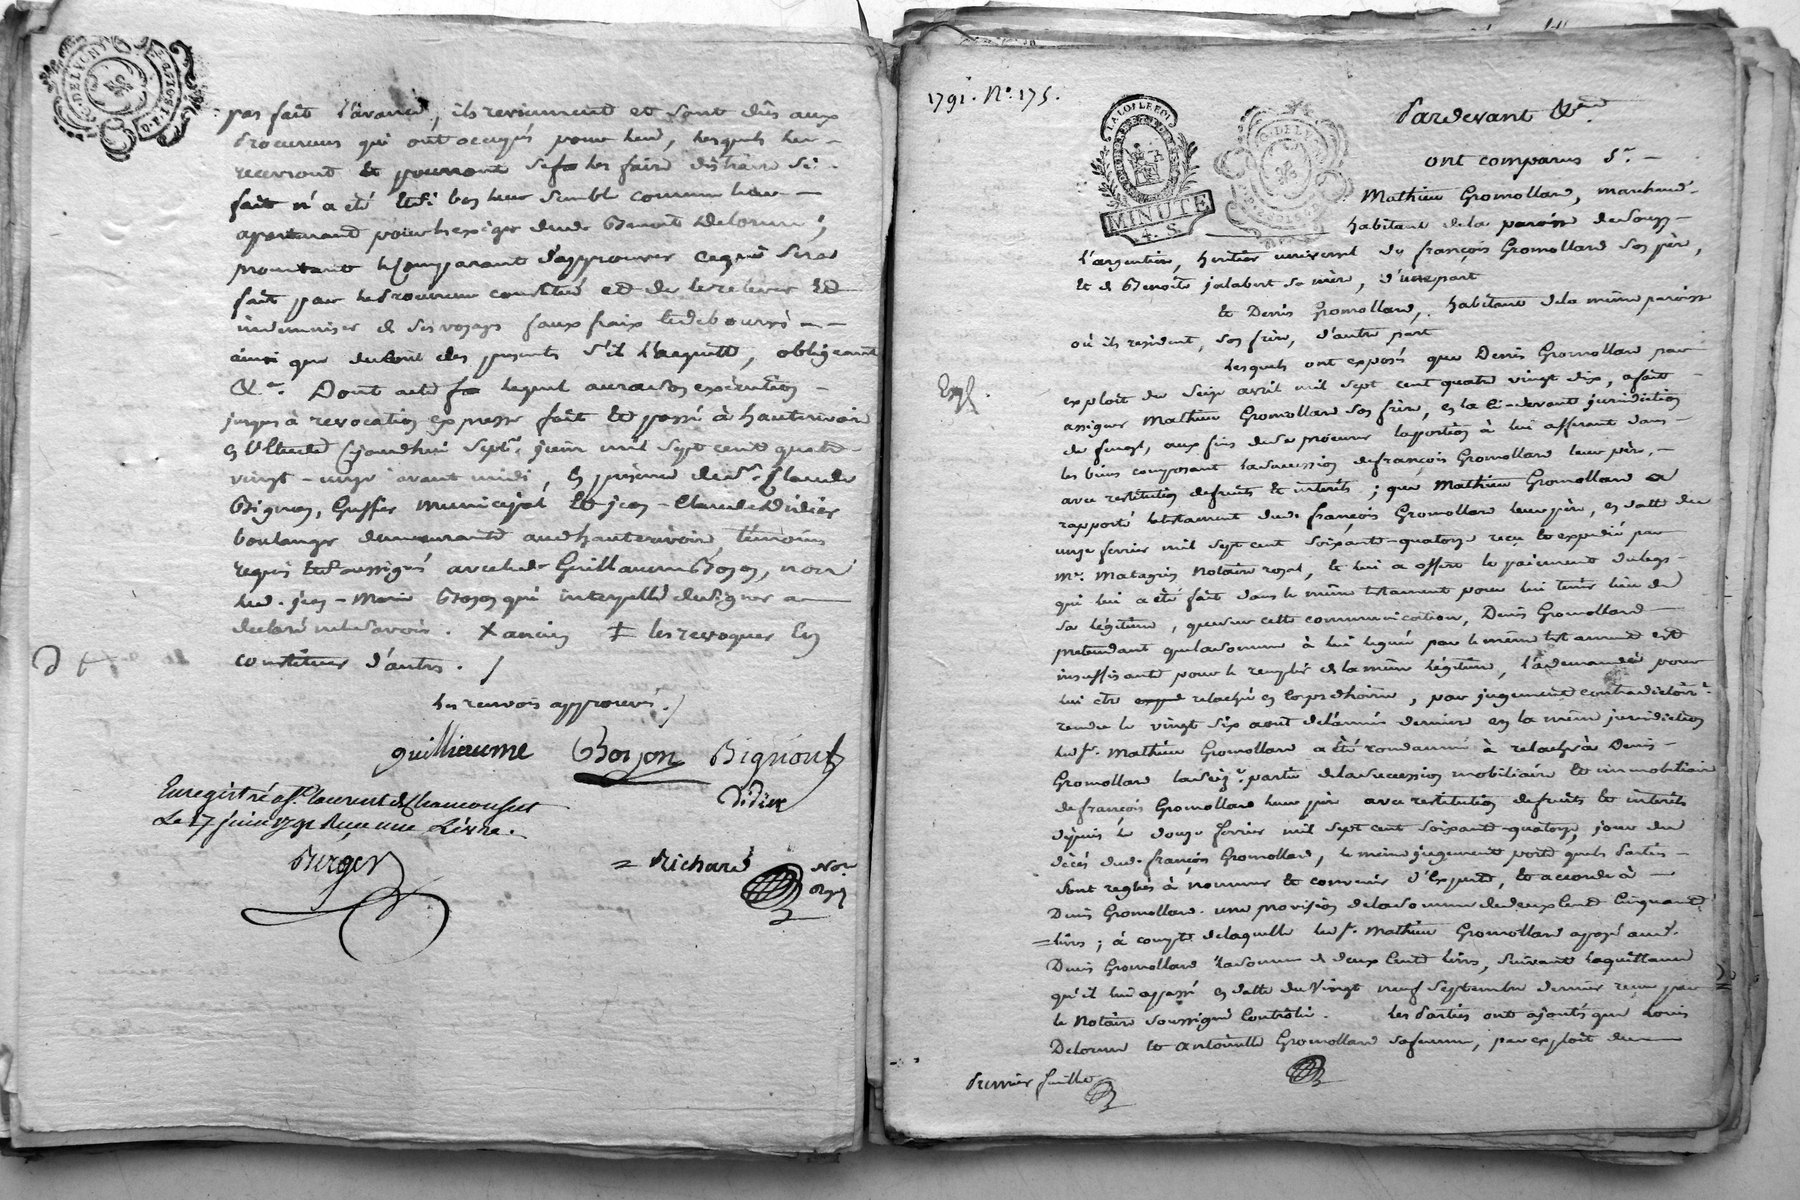 DE LYON
pas fait l'avance, ils reviennent et sont dûs aux
Procureurs qui ont occupés pour lui, lesquels les
recevront et pourront se les faire distraire si
fait n'a été et si bon leur semble comme leur
apartenant pour les exiger dud. Benoit Delorme;
promettant le Comparant d'approuver ce qui sera
fait par le Procureur constitué et de le relever et
indemniser de ses voyages faux fraix et deboursés
ainsi que du coût des presentes s'il l'acquitte, obligeant
&a. Dont acte lequel aura son exécution
jusques à revocation expresse fait et passé à hauterivoire
en l'Etude cejourdhui sept juin mil sept cent quatre
vingt-onze avant midi, en présence de sr. Claude
Bignon, Greffier municipal et jean-Claude Didier
boulanger demeurants aud. hauterivoire temoins
requis et soussignés avec led. Guillaume Boyon, non
led. jean-Marie Boyon qui interpellé de signer a
declaré ne le savoir. X ancien ‡ les revoquer en
constituer d'autres. /
les renvois approuvés. /
guilliaume Boyon Bignont
Didier
Enregistré a St. Laurent de Chamousset
Le 17 juin 1791 Reçu une Livre.
Berger
= Richard Nore.
Royl
1791. No. 175.
LA LOI LE ROI
MINUTE
4. S.
DE LYON
Pardevant &a.
ont comparus Sr.
Mathieu Gromollard, marchand
habitant de la paroisse de Souzy
l'argentiere, heritier universel de françois Gromollard son père,
et de Benoite jalabert sa mère, d'une part
et Denis Gromollard, habitant de la même paroisse
où ils resident, son frère, d'autre part
Lesquels ont exposés que Denis Gromollard par
Expé.
exploit du seize avril mil sept cent quatre vingt dix, a fait
assigner Mathieu Gromollard son frère, en la ci-devant jurisdiction
de, aux fins de se procurer la portion à lui afferant dans
les biens composant la succession de françois Gromollard leur père,
avec restitution de fruits et interets; que Mathieu Gromollard a
rapporté le testament dud. françois Gromollard leur père, en datte du
onze fevrier mil sept cent soixante-quatorze reçu et expedié par
Me. Matagrin Notaire royal, et lui a offert le paiement du legs
qui lui a été fait dans le même testament pour lui tenir lieu de
sa légitime, que sur cette communication, Denis Gromollard
pretendant que la somme à lui leguée par le même testament est
insuffisante pour le remplir de la même légitime, l'a demandée pour
lui être relachée en corps d'hoirie, par jugement contradictoire
rendu le vingt six aout de l'année derniere en la même jurisdiction
led. sr. Mathieu Gromollard a été condamné à relacher à Denis
Gromollard la partie de la succession mobiliaire et immobiliaire
de françois Gromollard leur père avec restitution de fruits et interets
depuis le douze fevrier mil sept cent soixante-quatorze, jour du
décès dud. françois Gromollard, le même jugement porte que les Parties
sont reglées à nommer et convenir d'Experts, et accorde à
Denis Gromollard une provision de la somme de deux Cent Cinquante
=livres; à compte de laquelle led. sr. Mathieu Gromollard a payé aud.
Denis Gromollard la somme de deux Cent livres, suivant la quittance
qu'il lui a passé en datte du vingt neuf Septembre dernier reçue par
le Notaire soussigné Contrôlée. Les Parties ont ajoutés que Louis
Delorme et Antoinette Gromollard sa femme, par exploit du
Premier feuillet